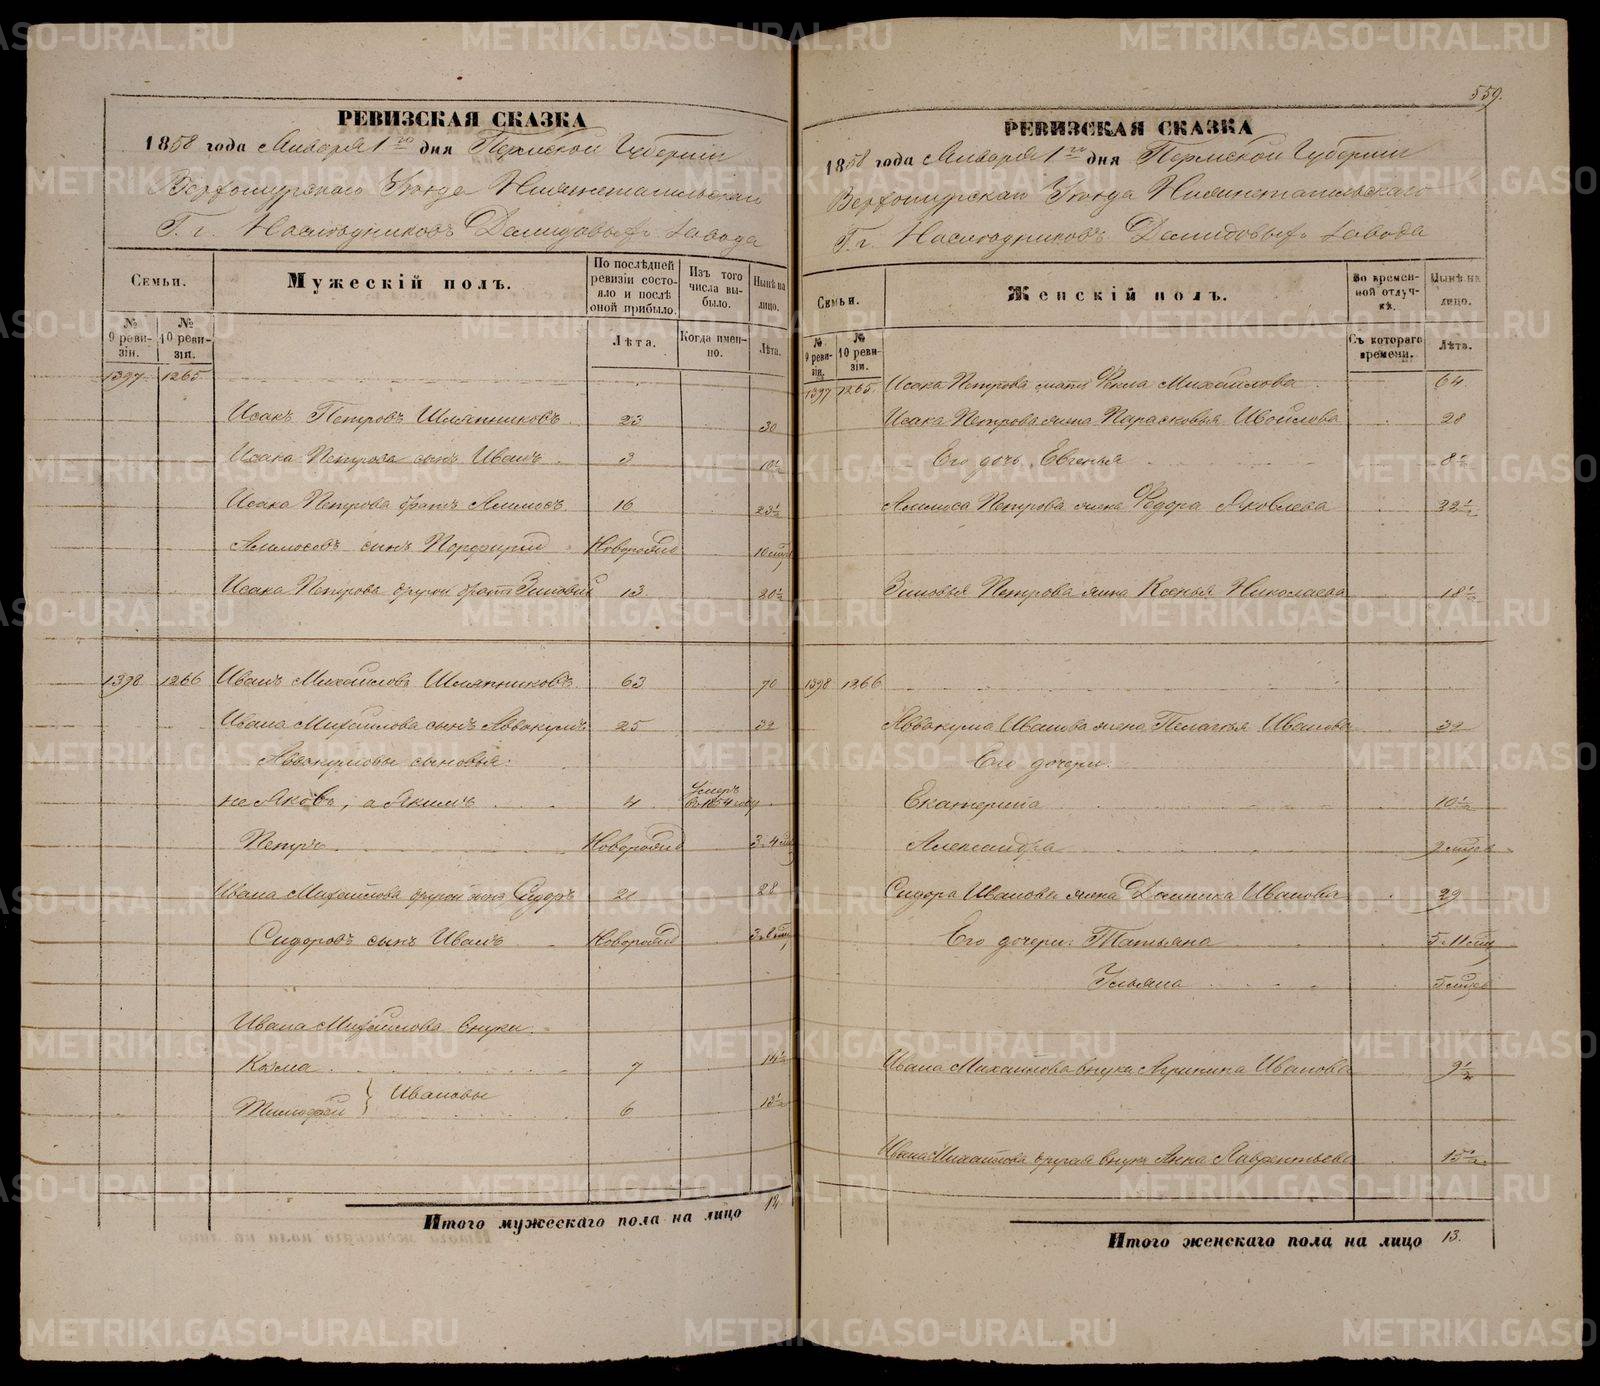 РЕВИЗСКАЯ СКАЗКА
1858 года Января 1го дня Пермской Губерніи
Верхотурскаго Уѣзда Нижнетагильскаго
Г. г. Наслѣдниковъ Демидовыхъ завода
Семьи.
Мужескій полъ.
По послѣдней ревизіи состояло и послѣ оной прибыло.
Изъ того числа выбыло.
Нынѣ на лицо.
№ 9 ревизіи.
№ 10 ревизіи.
Лѣта.
Когда именно.
Лѣта.
1397 1265
Исакъ Петровъ Шляпниковъ 23 30
Исака Петрова сынъ Иванъ 3 10½
Исака Петрова братъ 16 23½
сынъ Порфирій Новорожд 10 мѣс
Исака Петрова другой братъ Зиновий 13 20½
1398 1266 Иванъ Михайловъ Шляпниковъ 63 70
Ивана Михайлова сынъ Аввакумъ 25 32
Аввакумовы сыновья:
не Яковъ, а Якимъ 4 Умеръ въ 1854 году
Петръ Новорожд 3. 4 мѣс
Ивана Михайлова другой сынъ Сидоръ 21 28
Сидоровъ сынъ Иванъ Новорожд
Ивана Михайлова внуки:
Козма 7 14½
Тимофей } Ивановы 6 13½
Итого мужескаго пола на лицо 12.
559.
РЕВИЗСКАЯ СКАЗКА
1858 года Января 1го дня Пермской Губерніи
Верхотурскаго Уѣзда Нижнетагильскаго
Г. г. Наслѣдниковъ Демидовыхъ завода
Семьи.
Женскій полъ.
Во временной отлучкѣ.
Нынѣ на лицо.
№ 9 ревизіи.
№ 10 ревизіи.
Съ котораго времени.
Лѣта.
1397 1265. Исака Петрова мать Фекла Михайлова 64
Исака Петрова жена Парасковья Самойлова 28
Его дочь Евгенья 8½
Петрова жена Федора Яковлева 32½
Зиновья Петрова жена Ксенья Николаева 18½
1398 1266
Аввакума Иванова жена Пелагья Иванова 32
Его дочери:
Екатерина 10½
Александра 9 мѣсяц
Сидора Иванова жена Домника Иванова 29
Его дочери: Татьяна 5. 11 мѣс
Ульяна 5 мѣсяц
Ивана Михайлова внука Агрипина Иванова 9½
Ивана Михайлова другая внука Анна Лаврентьева 15½
Итого женскаго пола на лицо 13.
METRIKI.GASO-URAL.RU